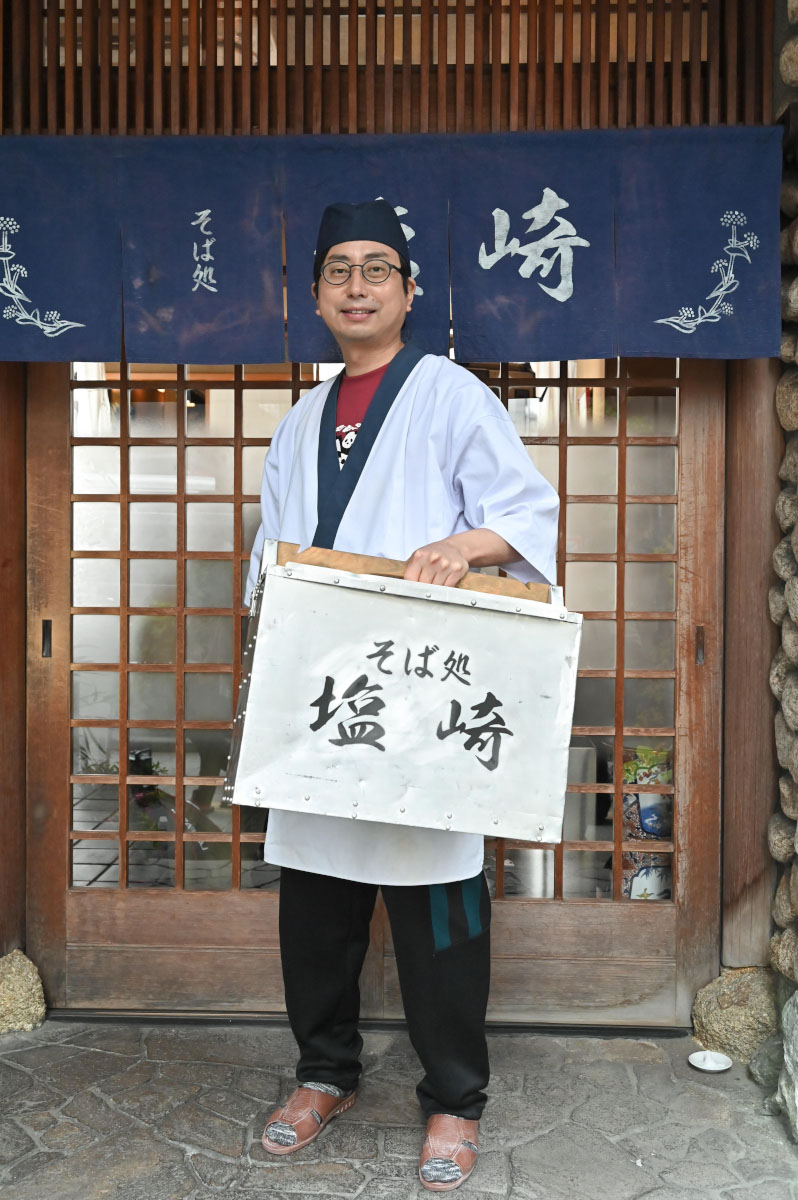 そば処
崎
そば処
塩崎